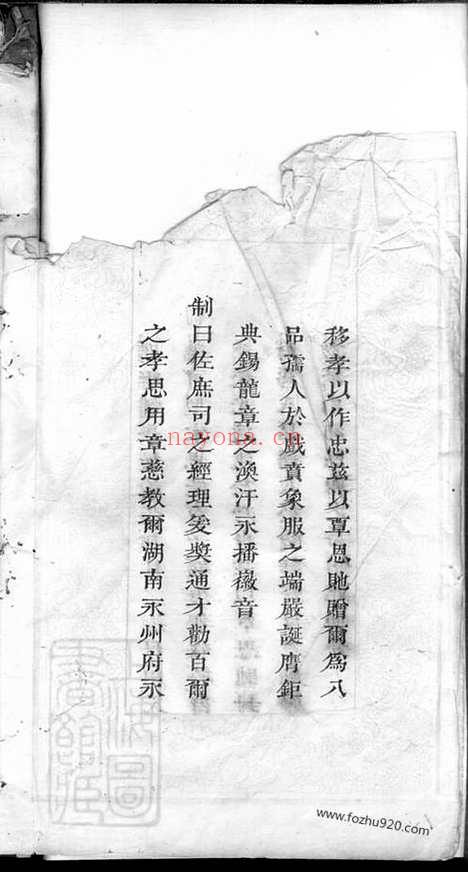 移孝以作忠茲以覃恩貤贈爾為八
品孺人於戲賁象服之端嚴誕膺鉅
典錫龍章之渙汗永播徽音
制曰佐庶司之經理爰獎通才勸百爾
之孝思用章慈教爾湖南永州府永
nayona.cn
www.fozhu920.com